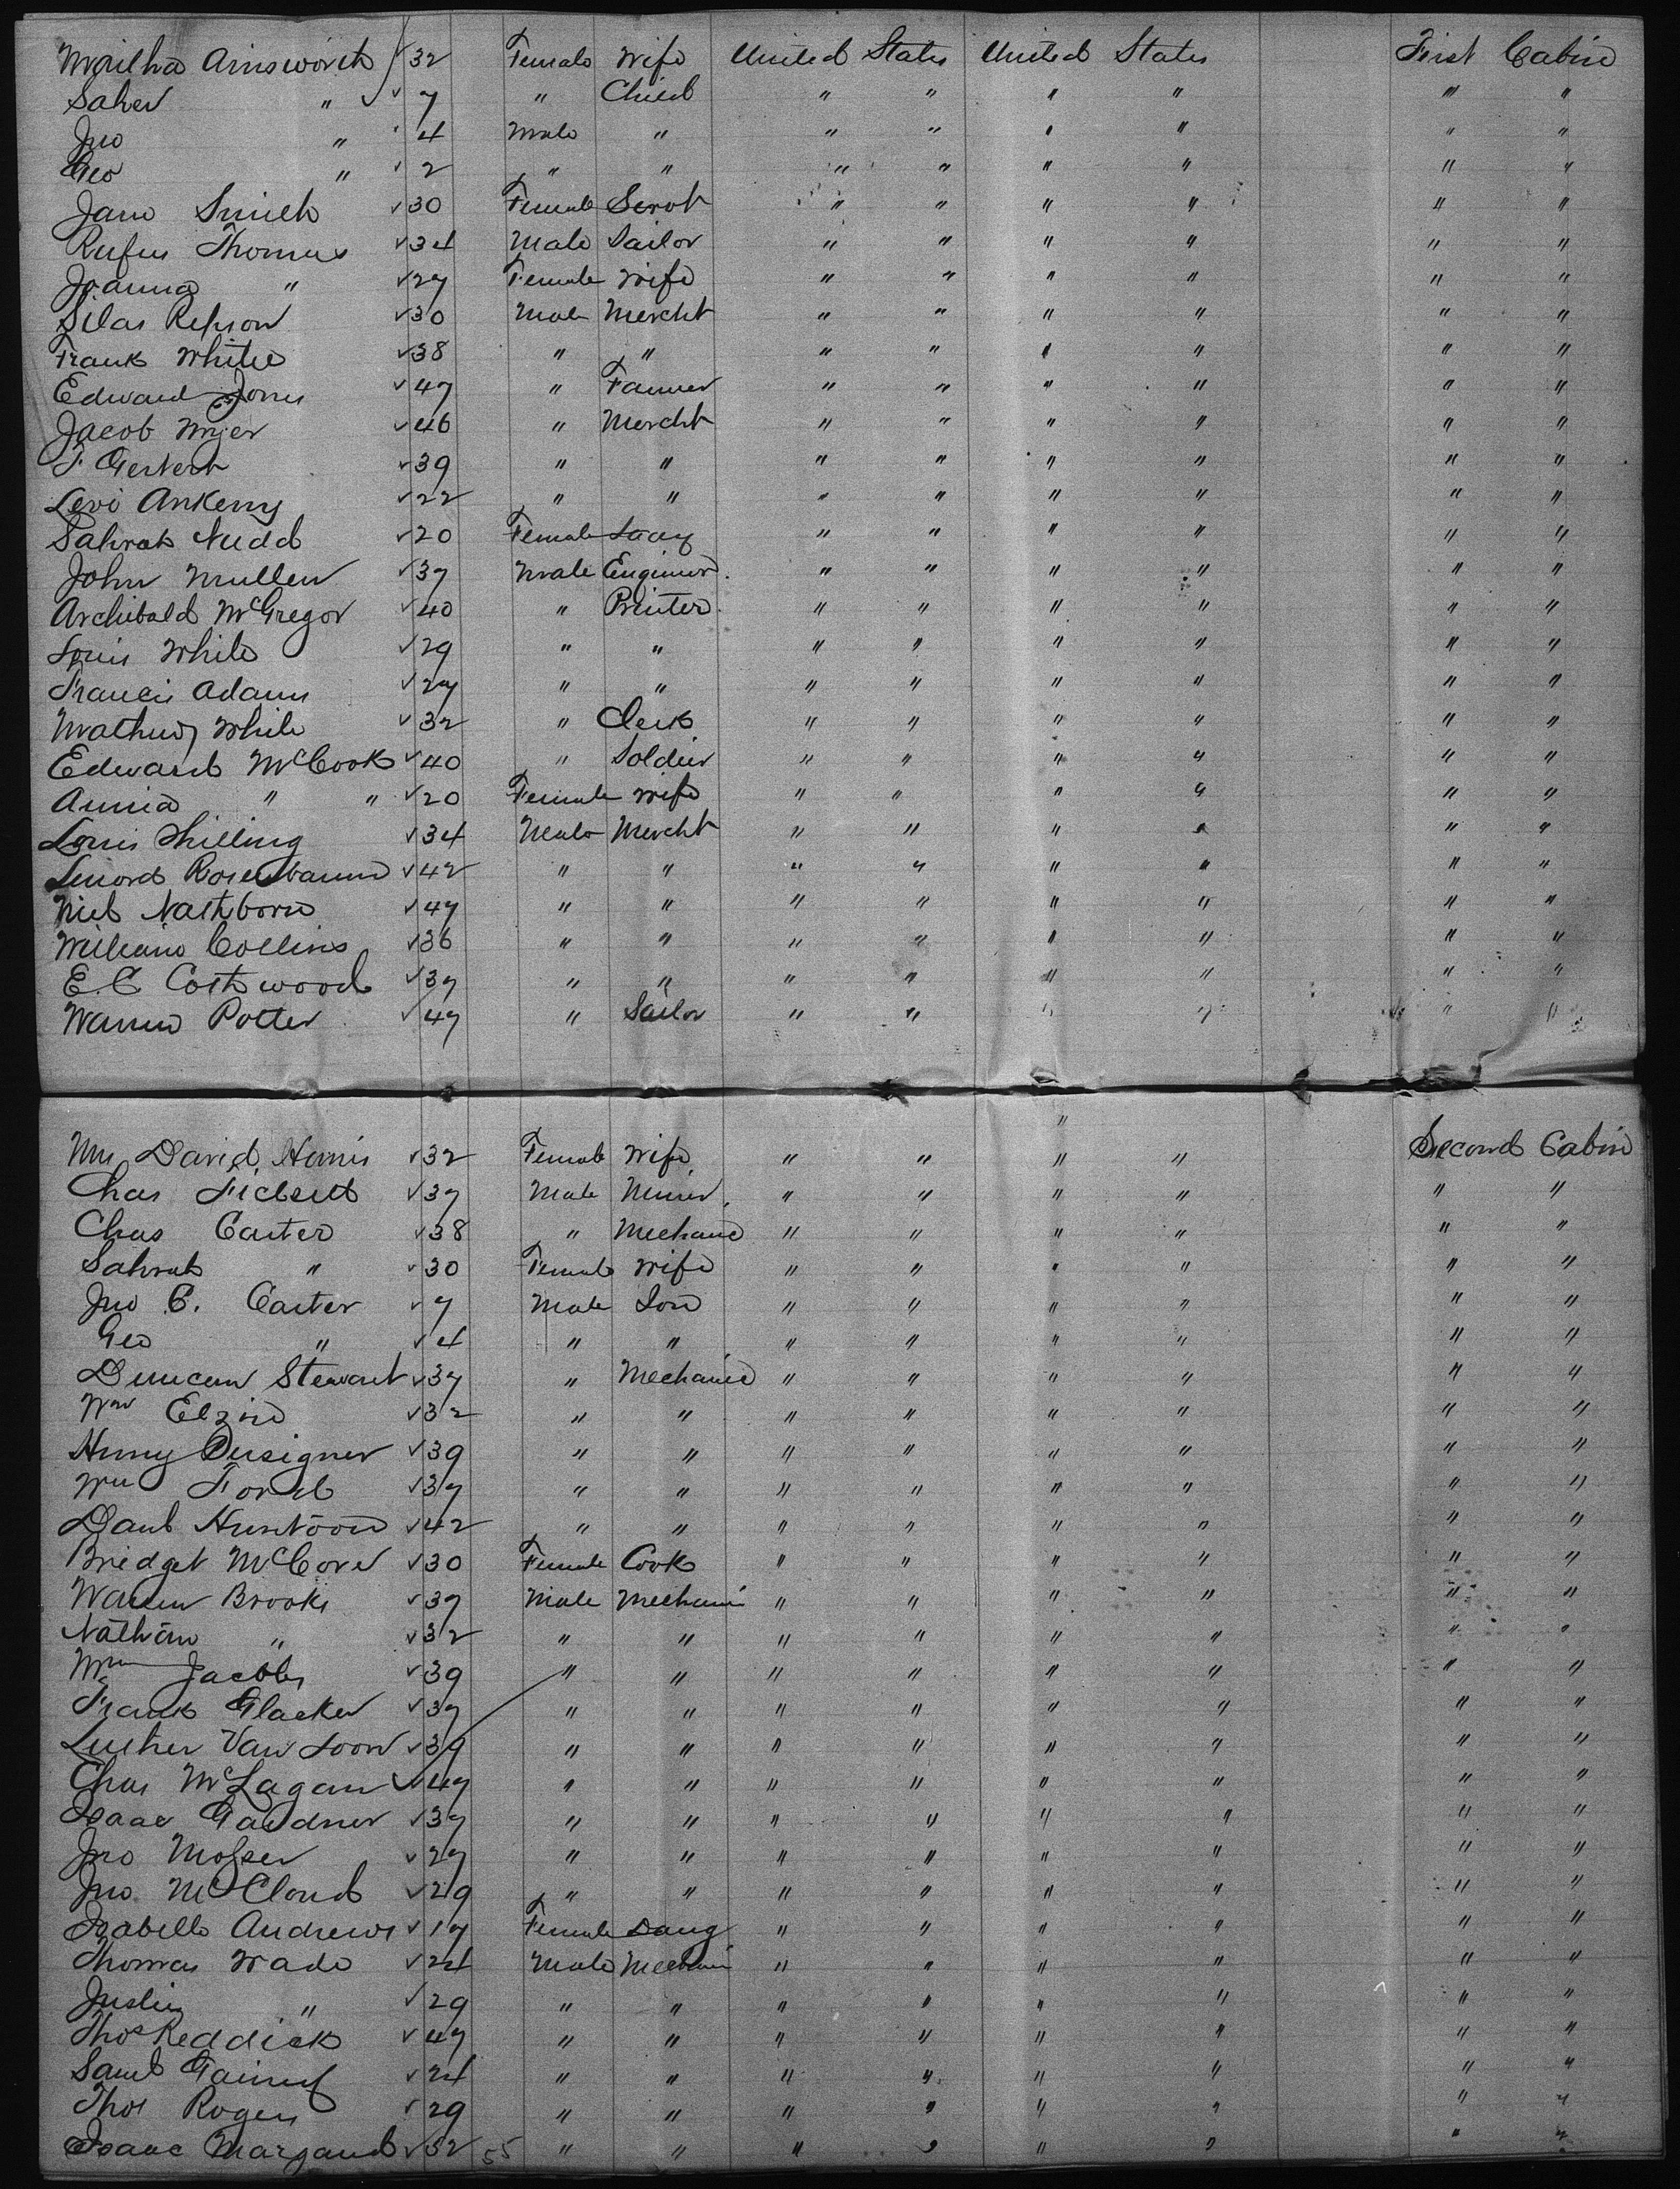 Martha Ainsworth 32 Female Wife United States United States First Cabin
Saher " 7 " Child " " " " " "
Jno " 4 Male " " " " " " "
Geo " 2 " " " " " " " "
Jane Smith 30 Female Servt " " " " " "
Rufus Thomas 34 Male Sailor " " " " " "
Joanna " 27 Female Wife " " " " " "
Silas 30 Male Mercht " " " " " "
Frank White 38 " " " " " " " "
Edward Jones 47 " Farmer " " " " " "
Jacob Myer 46 " Mercht " " " " " "
F. Gerbert 39 " " " " " " " "
Levi Ankeny 22 " " " " " " " "
Sahrah Nudd 20 Female Lady " " " " " "
John Mullen 37 Male Engineer " " " " " "
Archibald McGregor 40 " Printer " " " " " "
Louis White 29 " " " " " " " "
Francis Adams 27 " " " " " " " "
Mathew White 32 " Clerk " " " " " "
Edward McCook 40 " Soldier " " " " " "
Annia " " 20 Female Wife " " " " " "
Louis Shilling 34 Male Mercht " " " " " "
Rosenbaum 42 " " " " " " " "
Nathborn 47 " " " " " " " "
William Collins 36 " " " " " " " "
E. C Cothwood 37 " " " " " " " "
Warren Potter 47 " Sailor " " " " " "
"
Mrs David Harris 32 Female Wife " " " " Second Cabin
Chas 37 Male Miner " " " " " "
Chas Carter 38 " Mechanic " " " " " "
Sahrah " 30 Female Wife " " " " " "
Jno C. Carter 7 Male Son " " " " " "
Geo " 4 " " " " " " " "
Duncan Stewart 37 " Mechanic " " " " " "
Wm Elzin 32 " " " " " " " "
Henry Dusigner 39 " " " " " " " "
Wm Ford 37 " " " " " " " "
Danl Huntoon 42 " " " " " " " "
Bridget McCove 30 Female Cook " " " " " "
Warren Brooks 37 Male Mechanic " " " " " "
Nathan " 32 " " " " " " " "
Wm Jacobs 39 " " " " " " " "
Frank Glacken 37 " " " " " " " "
Luther Van Loon 39 " " " " " " " "
Chas McLagan 47 " " " " " " " "
Isaac Gardner 37 " " " " " " " "
Jno Mosser 27 " " " " " " " "
Jno McCloud 29 " " " " " " " "
Isabella Andrews 17 Female Daug " " " " " "
Thomas Wade 24 Male Mechanic " " " " " "
Justin " 29 " " " " " " " "
Thos Reddick 47 " " " " " " " "
Saml 24 " " " " " " " "
Thos Rogers 29 " " " " " " " "
Isaac Marzand 52 55 " " " " " " " "